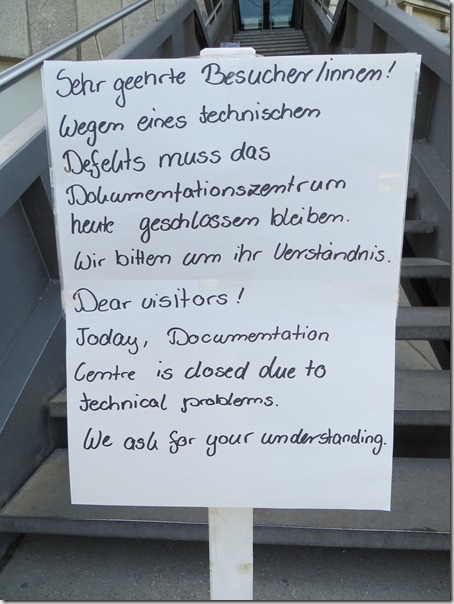 Sehr geehrte Besucher/innen!
Wegen eines technischen
Defekts muss das
Dokumentationszentrum
heute geschlossen bleiben.
Wir bitten um ihr Verständnis.
Dear visitors!
Today, Documentation
Centre is closed due to
technical problems.
We ask for your understanding.